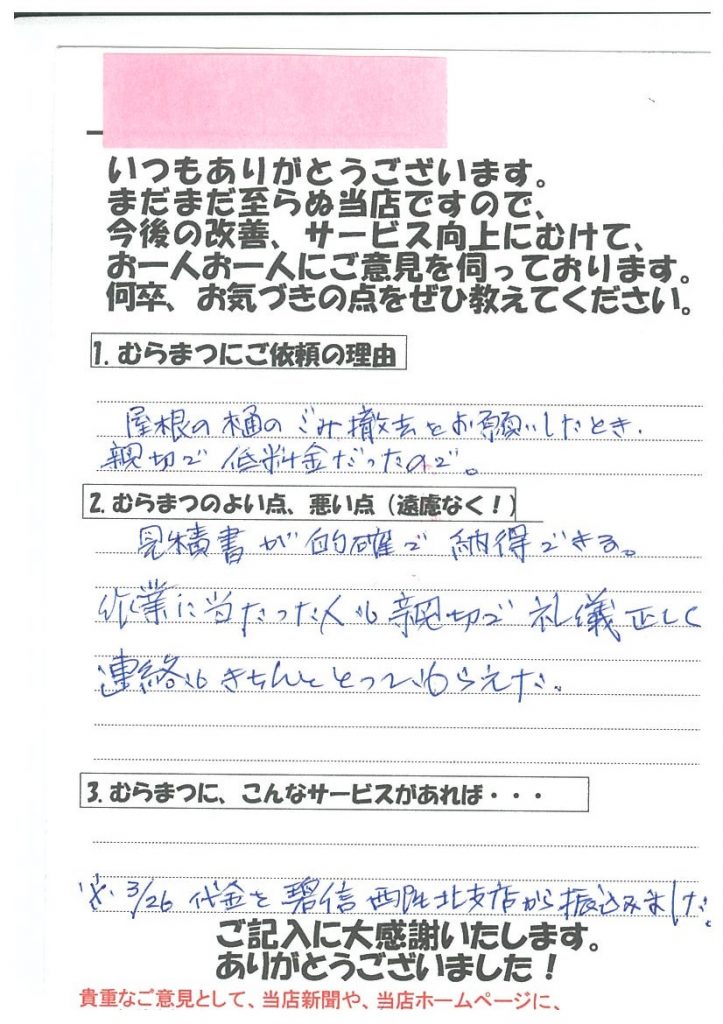 いつもありがとうございます。
まだまだ至らぬ当店ですので、
今後の改善、サービス向上にむけて、
お一人お一人にご意見を伺っております。
何卒、お気づきの点をぜひ教えてください。
1. むらまつにご依頼の理由
屋根の樋のごみ撤去をお願いしたとき.
親切で低料金だったので。
2. むらまつのよい点、悪い点（遠慮なく！）
見積書が的確で納得できる。
作業に当たった人も親切で礼儀正しく
連絡もきちんととってもらえた。
3. むらまつに、こんなサービスがあれば・・・
※. 3/26 代金を碧信西陣北支店から振込みました。
ご記入に大感謝いたします。
ありがとうございました！
貴重なご意見として、当店新聞や、当店ホームページに、